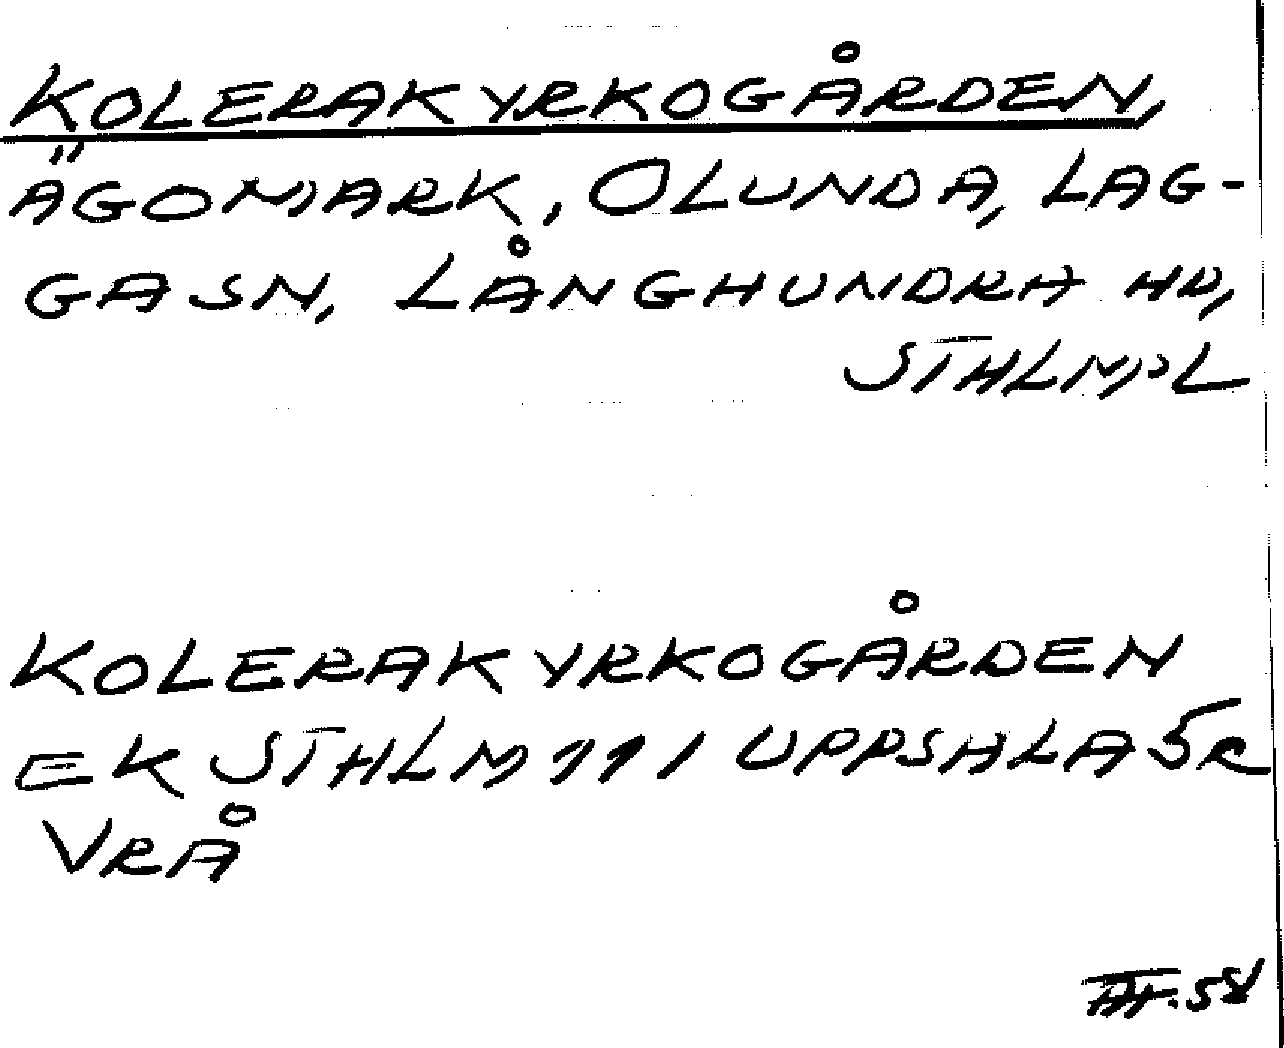 KOLERAKYRKOGÅRDEN,
ÄGOMARK, OLUNDA, LAG-
GA SN, LÅNGHUNDRA HD,
STHLMPL
KOLERAKYRKOGÅRDEN
EK STHLM 111 UPPSALA 5R
VRÅ